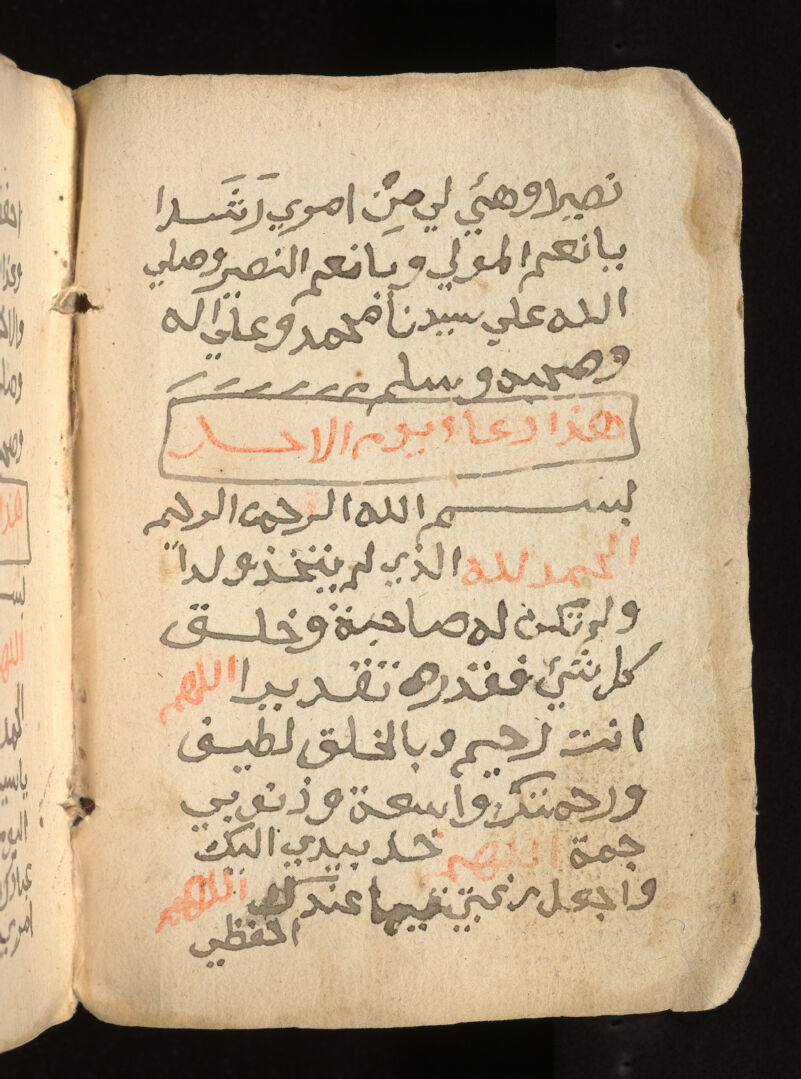 نصيرا وهيئ لي من اموري رشدا
يانعم المولي ويانعم النصير وصلي
الله علي سيدنا محمد وعلي اله
وصحبه وسلم
هذا دعاء يوم الاحد
بسم الله الرحمن الرحيم
الحمد لله الذي لم يتخذ ولدا
ولم تكن له صاحبة وخلق
كل شئ فقدره تقديرا اللهم
انت رحيم وبالخلق لطيف
ورحمتك واسعة وذنوبي
جمة اللهم خد بيدي اليك
واجعل رغبتي فيما عندك اللهم
احفظني